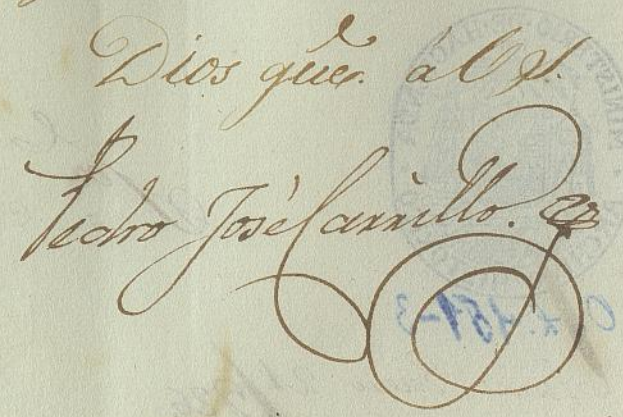 Dios gue. á V S.
Pedro José Carrillo.